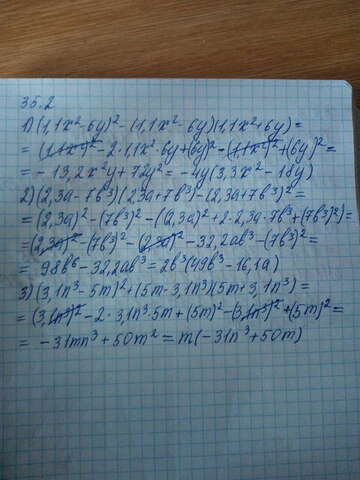 35.2
1) (1,1x²-6y)² - (1,1x²-6y)(1,1x²+6y) =
= (1,1x²)² - 2·1,1x²·6y + (6y)² - (1,1x²)² + (6y)² =
= - 13,2x²y + 72y² = - 4y(3,3x² - 18y)
2) (2,3a - 7b³)(2,3a + 7b³) - (2,3a + 7b³)² =
= (2,3a)² - (7b³)² - ((2,3a)² + 2·2,3a·7b³ + (7b³)²) =
= (2,3a)² - (7b³)² - (2,3a)² - 32,2ab³ - (7b³)² =
= 98b⁶ - 32,2ab³ = 2b³(49b³ - 16,1a)
3) (3,1n³ - 5m)² + (5m - 3,1n³)(5m + 3,1n³) =
= (3,1n³)² - 2·3,1n³·5m + (5m)² - (3,1n³)² + (5m)² =
= - 31mn³ + 50m² = m(-31n³ + 50m)